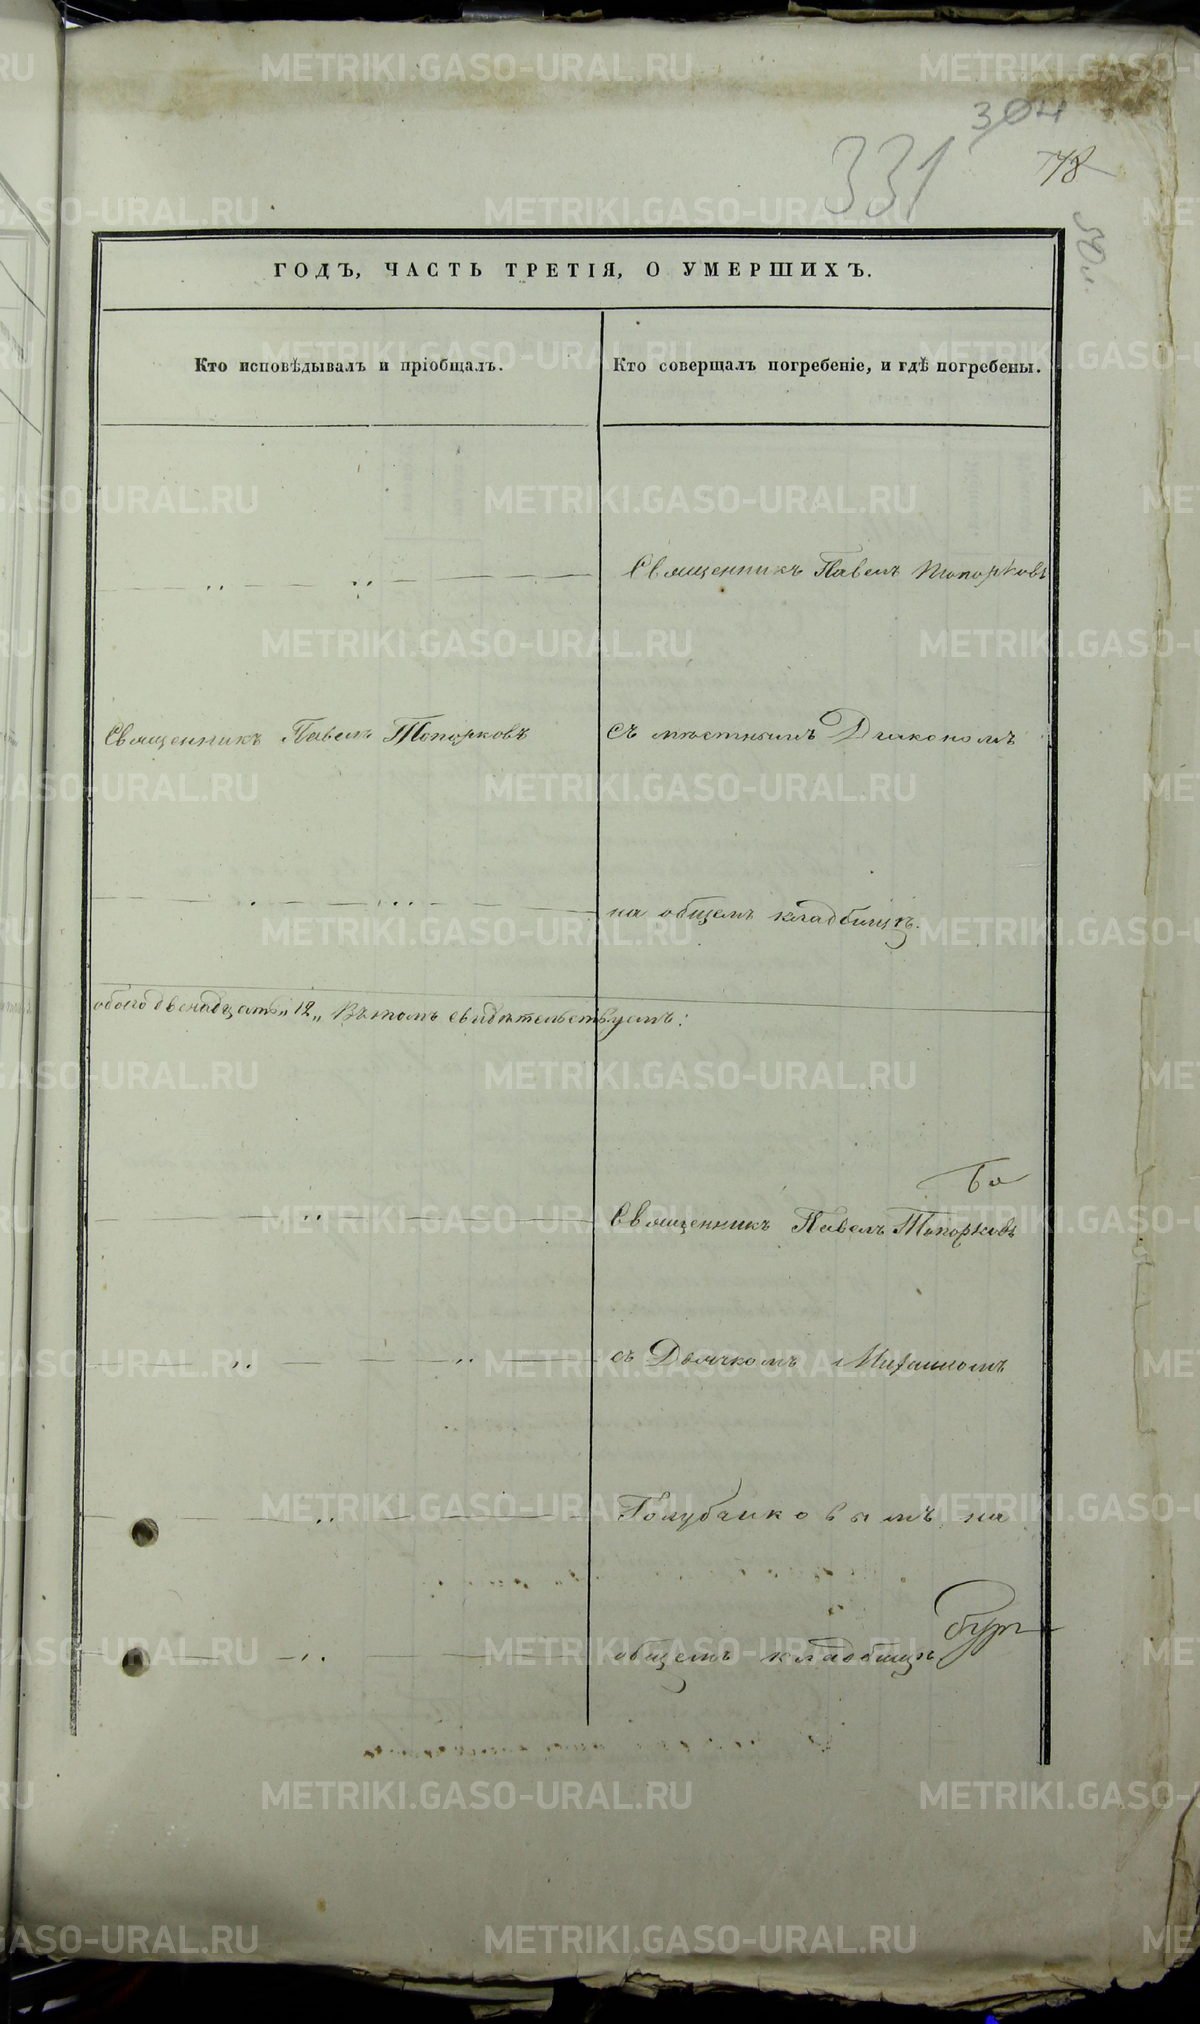 304
331
78
ГОДЪ, ЧАСТЬ ТРЕТІЯ, О УМЕРШИХЪ.
Кто исповѣдывалъ и пріобщалъ.
Кто совершалъ погребеніе, и гдѣ погребены.
Священникъ Павелъ Топорковъ
Священникъ Павелъ Топорковъ
съ мѣстнымъ Діакономъ
на общемъ кладбищѣ.
обоего двенадцать „12„ Въ томъ свидѣтельствуемъ:
Священникъ Павелъ Топорковъ
съ Дьячкомъ Михаиломъ
Голубчиковымъ на
общемъ кладбищѣ
METRIKI.GASO-URAL.RU